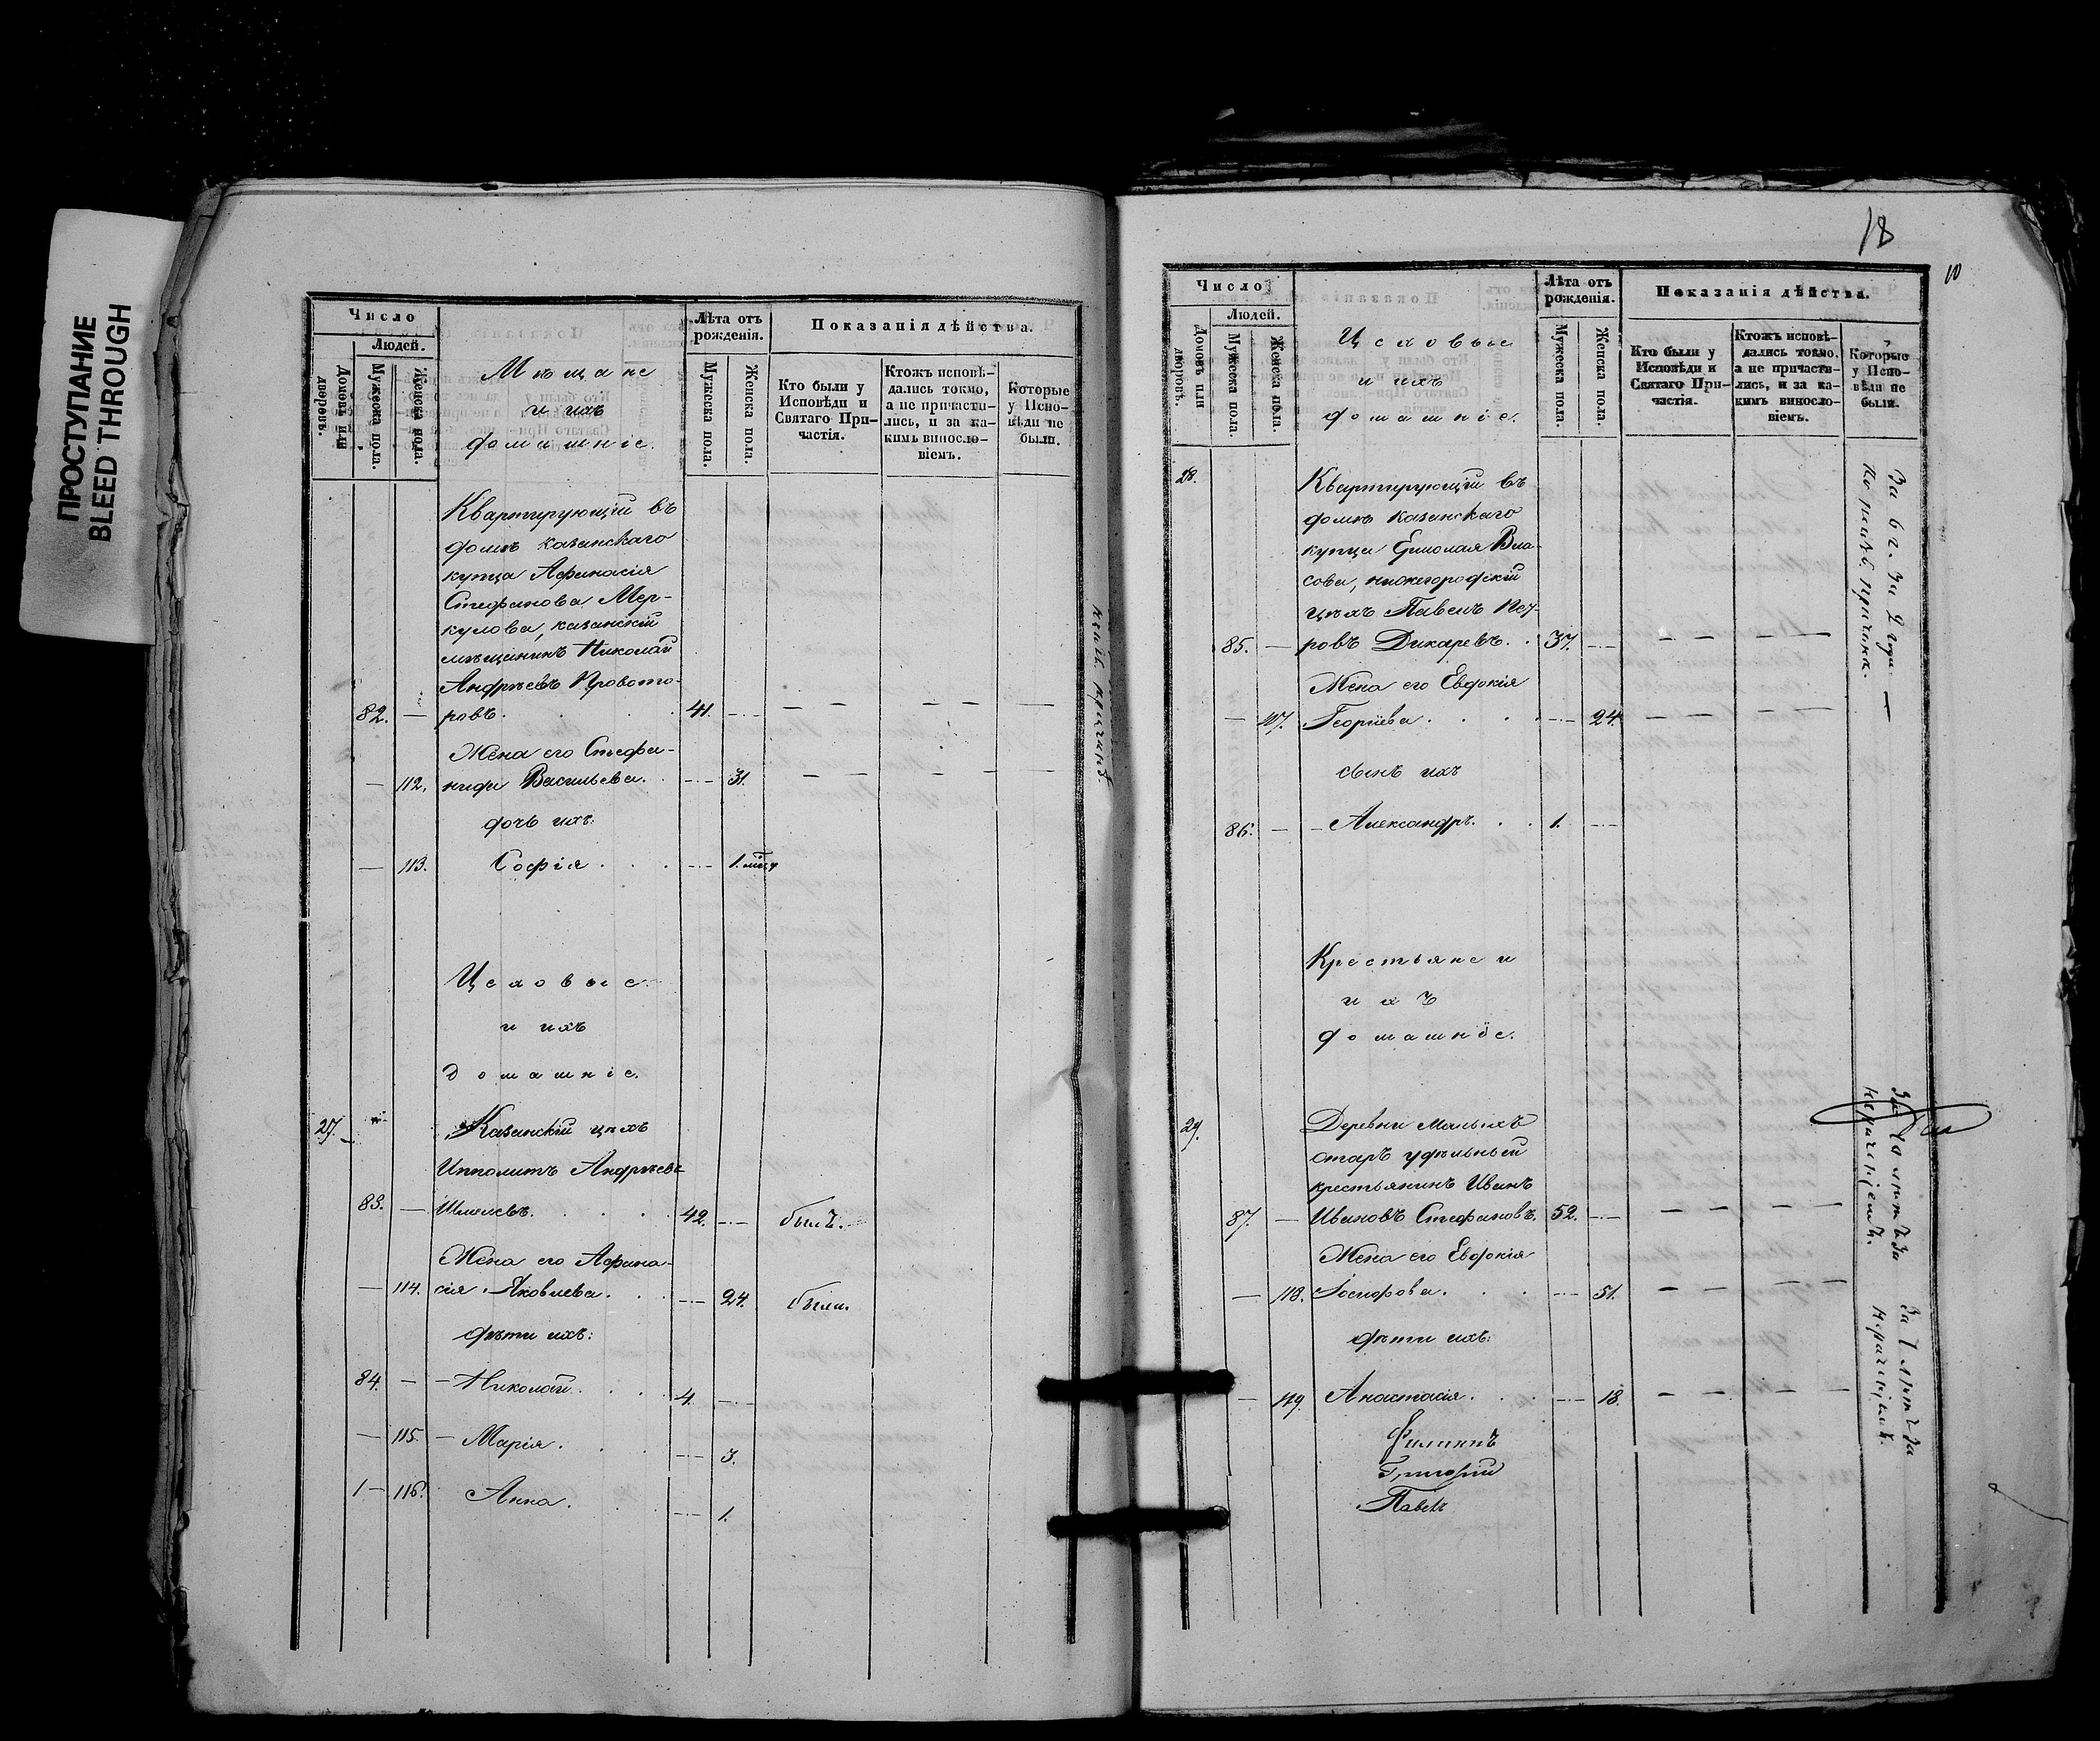 ПРОСТУПАНИЕ
BLEED THROUGH
Число
Людей.
Домовъ или дворовъ.
Мужеска пола.
Женска пола.
Мѣщане
и ихъ
домашніе.
Лѣта отъ рожденія.
Мужеска пола.
Женска пола.
Показанія дѣйства.
Кто были у Исповѣди и Святаго Причастія.
Ктожъ исповѣдались токмо, а не причастились, и за какимъ винословіемъ.
Которые у Исповѣди не были.
Квартирующій въ
домѣ казанскаго
купца Афанасія
Стефанова Мер-
кулова, казанскій
мѣщанинъ Николай
Андреевъ Провото-
82. — ровъ. 41.
Жена его Стефа-
— 112. нида Васильева. 31.
дочь ихъ:
— 113. Софія 1. мѣц.
Цеховые
и ихъ
домашніе.
27. Казанскій цехъ
Ипполитъ Андреевъ
83. — Шмелевъ. 42. былъ.
Жена его Афана-
— 114. сія Яковлева. 24. была.
дѣти ихъ:
84. — Николай. 4.
— 115. — Марія. 3.
1 — 116. Анна. 1.
18
10
Число
Людей.
Домовъ или дворовъ.
Мужеска пола.
Женска пола.
Цеховые
и ихъ
домашніе.
Лѣта отъ рожденія.
Мужеска пола.
Женска пола.
Показанія дѣйства.
Кто были у Исповѣди и Святаго Причастія.
Ктожъ исповѣдались токмо, а не причастились, и за какимъ винословіемъ.
Которые у Исповѣди не были.
28. Квартирующій въ
домѣ казанскаго
купца Ермолая Вла-
сова, нижегородскій
цехъ Павелъ Пет-
85. — ровъ Дикаревъ. 37.
Жена его Евдокія
— 117. Георгіева. 24.
сынъ ихъ
86. — Александръ. 1.
За 6 г. За 2 года —
Крестьяне и
ихъ
домашніе.
29. Деревни Малыхъ
отаръ удѣльный
крестьянинъ Иванъ
87. — Ивановъ Стефановъ. 52.
Жена его Евдокія
— 118. Іосифова. 51.
дѣти ихъ:
— 119. Анастасія. 18.
Филиппъ
Григорій
Павелъ